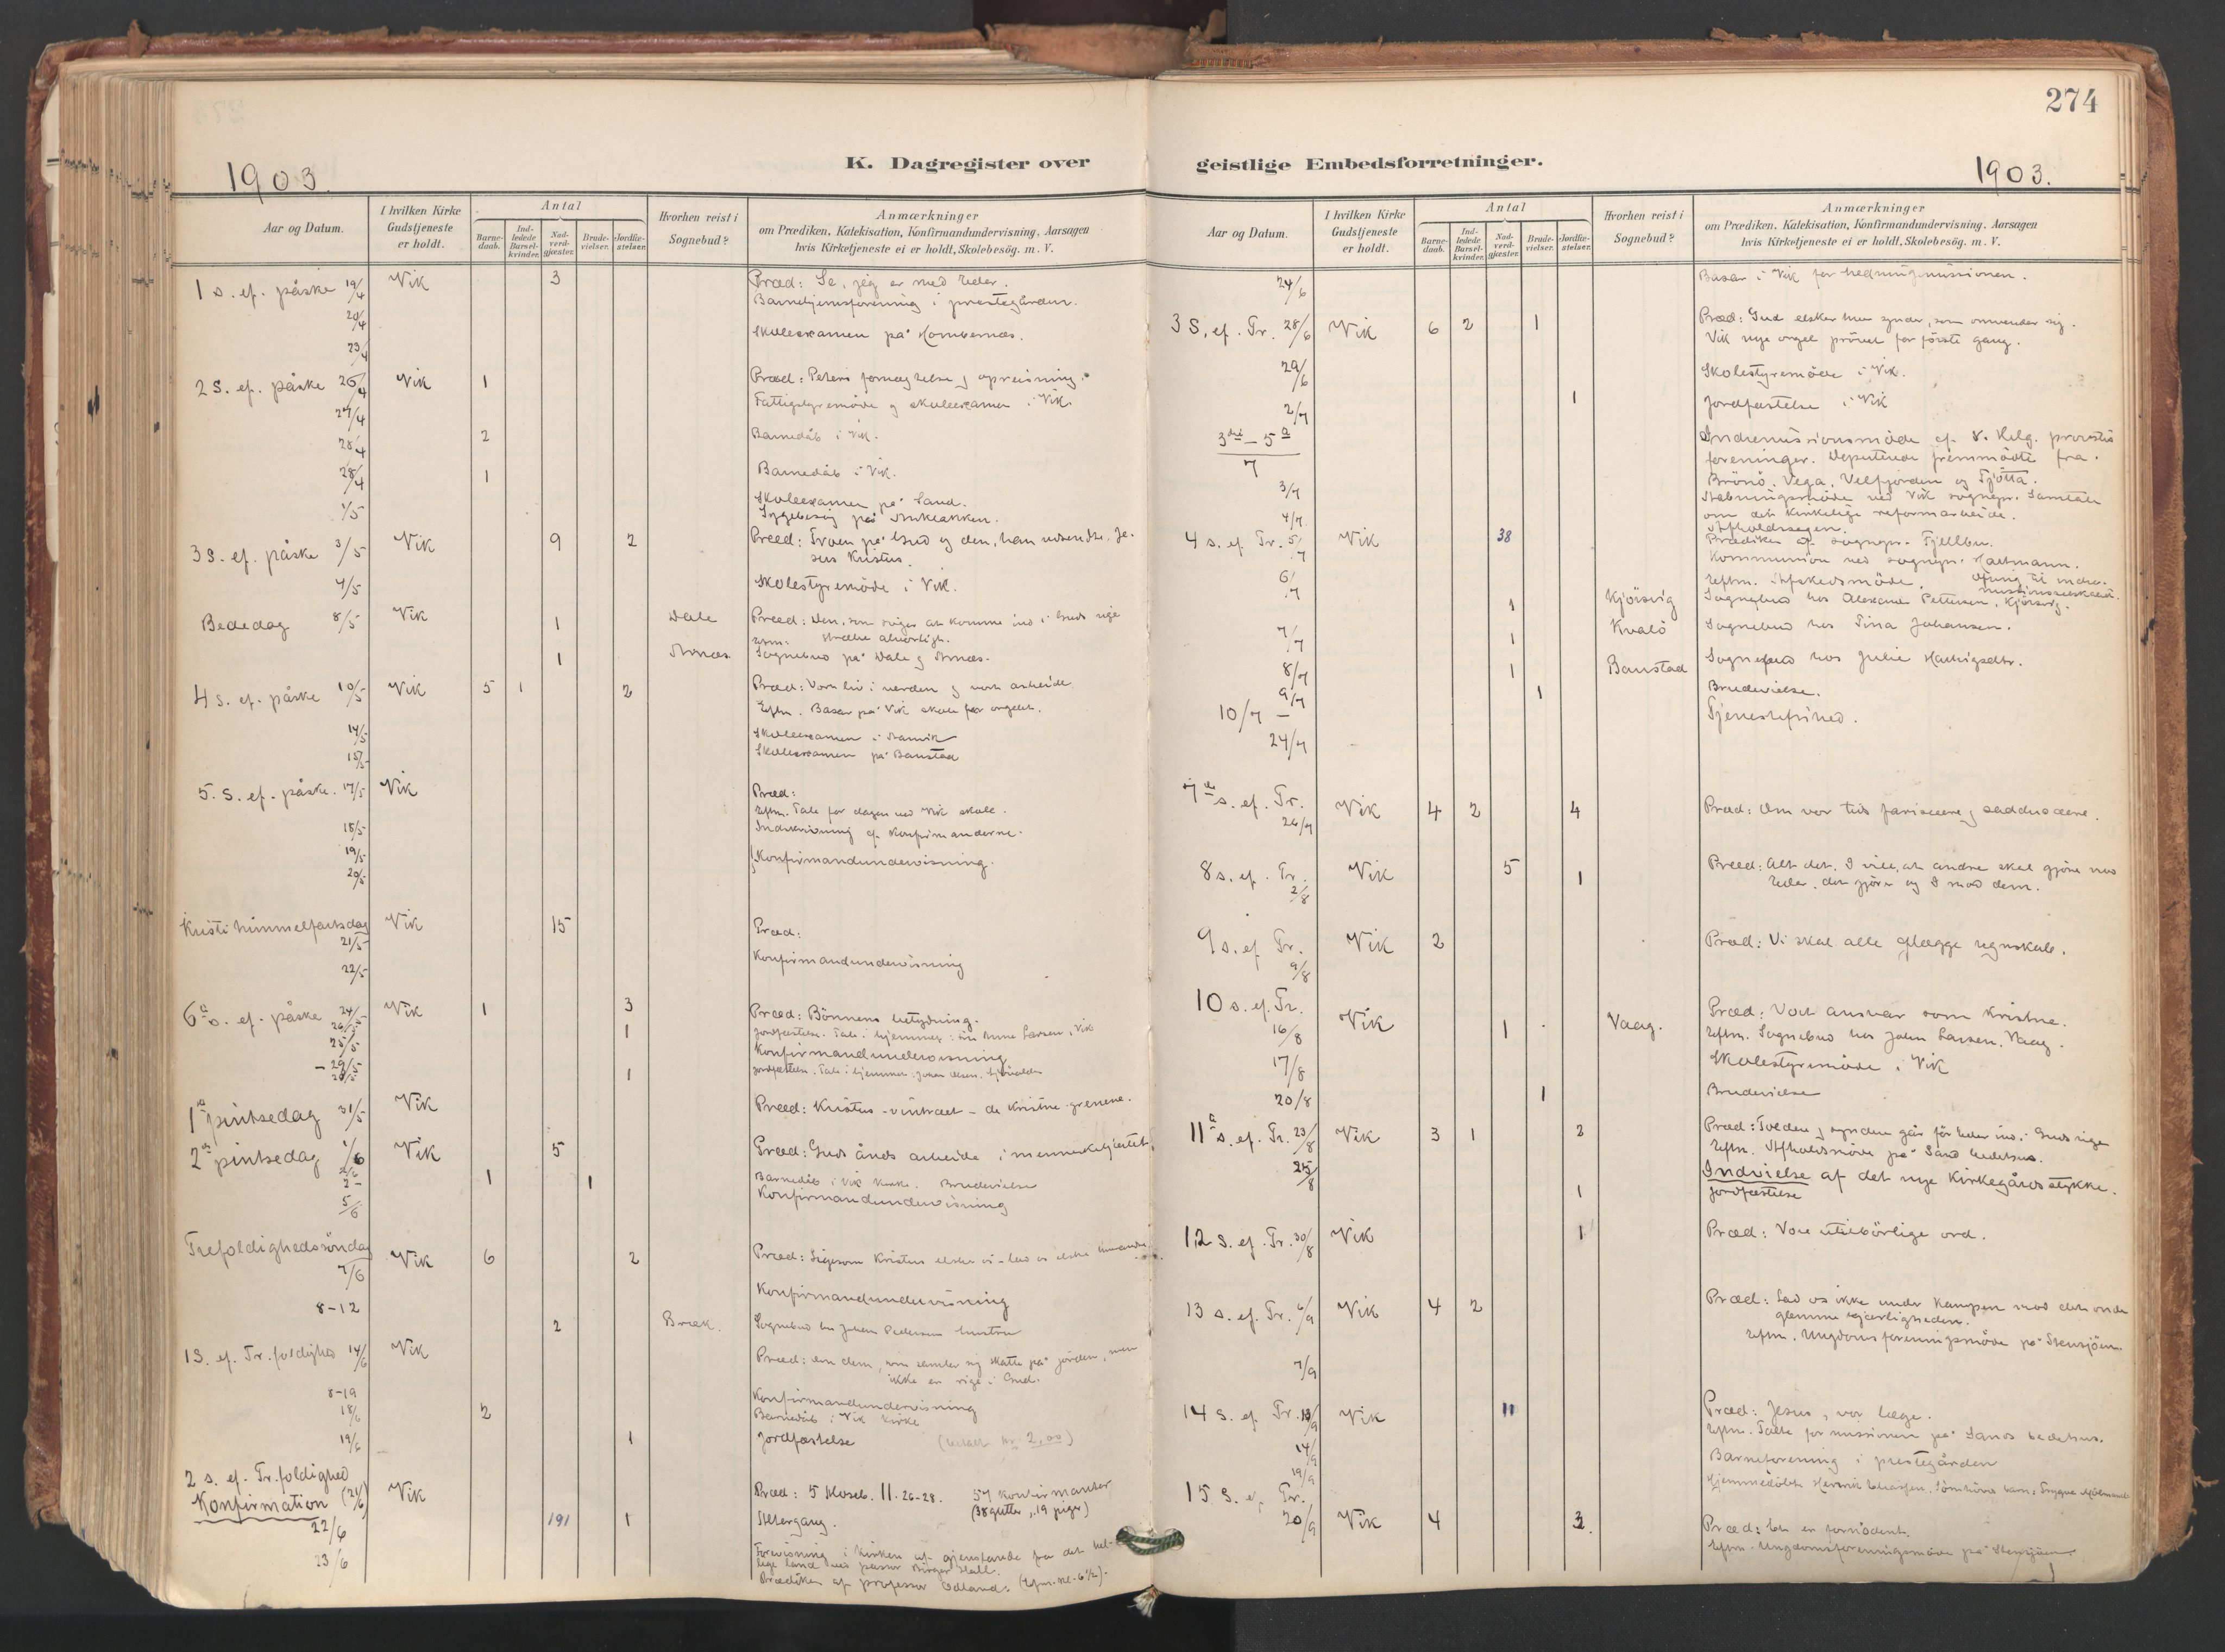 274
1903.
K. Dagregister over
geistlige Embedsforretninger.
1903.
Aar og Datum.
I hvilken Kirke Gudstjeneste er holdt.
Antal
Barne-daab.
Ind-ledede Barsel-kvinder.
Nad-verd-gjæster.
Brude-vielser.
Jordfæ-stelser.
Hvorhen reist i Sognebud?
Anmærkninger
om Prædiken, Katekisation, Konfirmandundervisning, Aarsagen
hvis Kirketjeneste ei er holdt, Skolebesög. m. V.
1 s. ef. påske 19/4 Vik 3 Præd: Se, jeg er med Eder.
20/4 Barnehjemsforening i prestegården.
23/4 Skoleexamen på
2 S. ef. påske 26/4 Vik 1 Præd: Peters fornægtelse og opreisning.
27/4 Fattigstyremöde og skoleexamen i Vik.
28/4 2 Barnedåb i Vik.
1 Barnedåb i Vik.
1/5 Skoleexamen på Sand.
Sygebesøg på
3 S. ef. påske 3/5 Vik 9 2 Præd: Troen på Gud og den, han udsendte, Je-
sus Kristus.
4/5 Skolestyremöde i Vik.
Bededag 8/5 Vik 1 Dale Præd: Den, som søger at komme ind i Guds rige
stræbe alvorligt.
1 Sognebud på Dale og
4 s. ef. påske 10/5 Vik 5 1 2 Præd: Vort liv i verden og vort arbeide.
Eftm. Basar på Vik skole for orgelet.
14/5 Skoleexamen i
15/5 Skoleexamen på Baustad
5. S. ef. påske. 17/5 Vik Præd:
Eftm. Tale for dagen ved Vik skole.
18/5 Indskrivning af Konfirmanderne.
19/5 Konfirmandundervisning.
20/5
Kristi himmelfartsdag Vik 15 Præd:
21/5
22/5 Konfirmandundervisning
6te s. ef. påske 24/5 Vik 1 3 Præd: Bönnens betydning.
26/5 1 Jordfæstelse. Tale i hjemmet: Anne Larsen, Vik
25/5 Konfirmandundervisning
- 29/5
28/5 1 Jordfæstelse. Tale i hjemmet: Johan Olsen,
1ste pintsedag 31/5 Vik Præd: Kristus - vintræet - de Kristne grenene.
2den pintsedag 1/6 Vik 5 Præd: Guds ånds arbeide i menneskehjertet.
1 1 Barnedåb i Vik Kirke. Brudevielse
5/6 Konfirmandundervisning
Trefoldighedssöndag
7/6 Vik 6 2 Præd: Ligesom Kristus elsker os - lad os elske
8-12 Konfirmandundervisning
2 Bræk. Sognebud hos Johan Pedersens hustru
1 S. ef. Tr.foldighed 14/6 Vik Præd: Om dem, som samler sig skatte på jorden, men
ikke er rige i Gud.
8-19 Konfirmandundervisning
18/6 2 Barnedåb i Vik Kirke
19/6 1 Jordfæstelse (betalt kr 2,00)
2 s. ef. Tr.foldighed
Konfirmation (21/6) Vik Præd: 5 Moseb. 11. 26-28. 57 konfirmanter
(38 gutter, 19 piger)
22/6 191 1 Altergang.
23/6 Forevisning i Kirken af gjenstande fra det hel-
lige land ved pastor Birger Hall.
Prædiken af professor Odland. (Eftm. kl. 6 1/2).
Aar og Datum.
I hvilken Kirke Gudstjeneste er holdt.
Antal
Barne-daab.
Ind-ledede Barsel-kvinder.
Nad-verd-gjæster.
Brude-vielser.
Jordfæ-stelser.
Hvorhen reist i Sognebud?
Anmærkninger
om Prædiken, Katekisation, Konfirmandundervisning, Aarsagen
hvis Kirketjeneste ei er holdt, Skolebesög. m. V.
24/6 Basar i Vik for hedningemissionen.
3 S. ef. Tr. 28/6 Vik 6 2 1 Præd: Gud elsker hver synder, som omvender sig.
Vik nye orgel prövet for förste gang.
29/6 Skolestyremöde i Vik.
2/7 1 Jordfæstelse i Vik
3die - 5te Indremissionsmöde af S. Helg. provstis
7 foreninger. Deputerede fremmödte fra
Brönö, Vega, Velfjorden og Tjötta.
3/7 Åbningsmöde ved Vik sognepr. Samtale
om det kirkelige reformarbeide.
4/7 Afholdssagen.
4 s. ef. Tr. 5/7 Vik 38 Prædiken af sognepr. Fjellbu.
Kommunion ved sognepr. Hartmann.
Eftm. Afskedsmöde. Ofring til indre-
missionsselskabet.
6/7 1 Kjörsvig Sognebud hos Petersen, Kjörsvig.
7/7 1 Kvalö Sognebud hos Tina Johansen.
8/7 1 Baustad Sognebud hos Julie
9/7 1 Brudevielse.
10/7 - Tjenestefrihed.
24/7
7de s. ef. Tr.
26/7 Vik 4 2 4 Præd: Om vor tids fariseere og sadducæere.
8 s. ef. Tr.
2/8 Vik 5 1 Præd: Alt det, I vil, at andre skal gjöre mod
Eder, det gjöre og I mod dem.
9 s. ef. Tr.
9/8 Vik 2 Præd: Vi skal alle aflægge regnskab.
10 s. ef. Tr.
16/8 Vik 1 Vaag. Præd: Vort ansvar som Kristne.
Eftm. Sognebud hos John Larsen, Vaag.
17/8 Skolestyremöde i Vik
20/8 1 Brudevielse
11te s. ef. Tr. 23/8 Vik 3 1 2 Præd: Tolden og synden går för Eder ind i Guds rige
Eftm. Afholdsmöde på Sand bedehus.
25/8 Indvielse af det nye Kirkegårdsstykke.
1 Jordfæstelse
12 s. ef. Tr. 30/8 Vik 1 Præd: Vore utilbörlige ord.
13 s. ef. Tr. 6/9 Vik 4 2 Præd: Lad os ikke under Kampen mod det onde
glemme kjærligheden.
Eftm. Ungdomsforeningsmöde på Stensjöen.
7/9
14 S. ef. Tr. 13/9 Vik 11 Præd: Jesus, vor læge.
Eftm. Talte for missionen på Sands bedehus.
14/9 Barneforening i prestegården
19/9 Hjemmedöbt Henrik
15 S. ef. Tr.
20/9 Vik 4 3. Præd: Et er fornödent.
Eftm. Ungdomsforeningsmöde på Stensjöen.